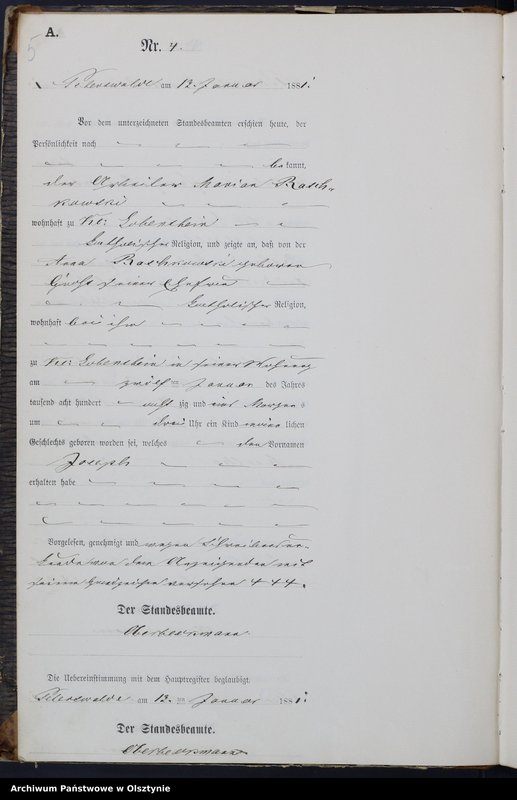 A.
5
Nr. 4.
am 13. Januar 1881.
Vor dem unterzeichneten Standesbeamten erschien heute, der
Persönlichkeit nach
bekannt,
der Arbeiter Marian Rasch-
kowski
wohnhaft zu Kl:
katholischer Religion, und zeigte an, daß von der
Anna Raschkowski geborenen
seiner Ehefrau
katholischer Religion,
wohnhaft bei ihm
zu Kl: in seiner Wohnung
am zwölften Januar des Jahres
tausend acht hundert achtzig und eins Morgens
um drei Uhr ein Kind männlichen
Geschlechts geboren worden sei, welches den Vornamen
Joseph
erhalten habe
Vorgelesen, genehmigt und wegen Schreibensun-
kunde von dem Anzeigenden mit
seinem Handzeichen versehen + + +.
Der Standesbeamte.
Die Uebereinstimmung mit dem Hauptregister beglaubigt.
am 13. ten Januar 1881.
Der Standesbeamte.
Archiwum Państwowe w Olsztynie